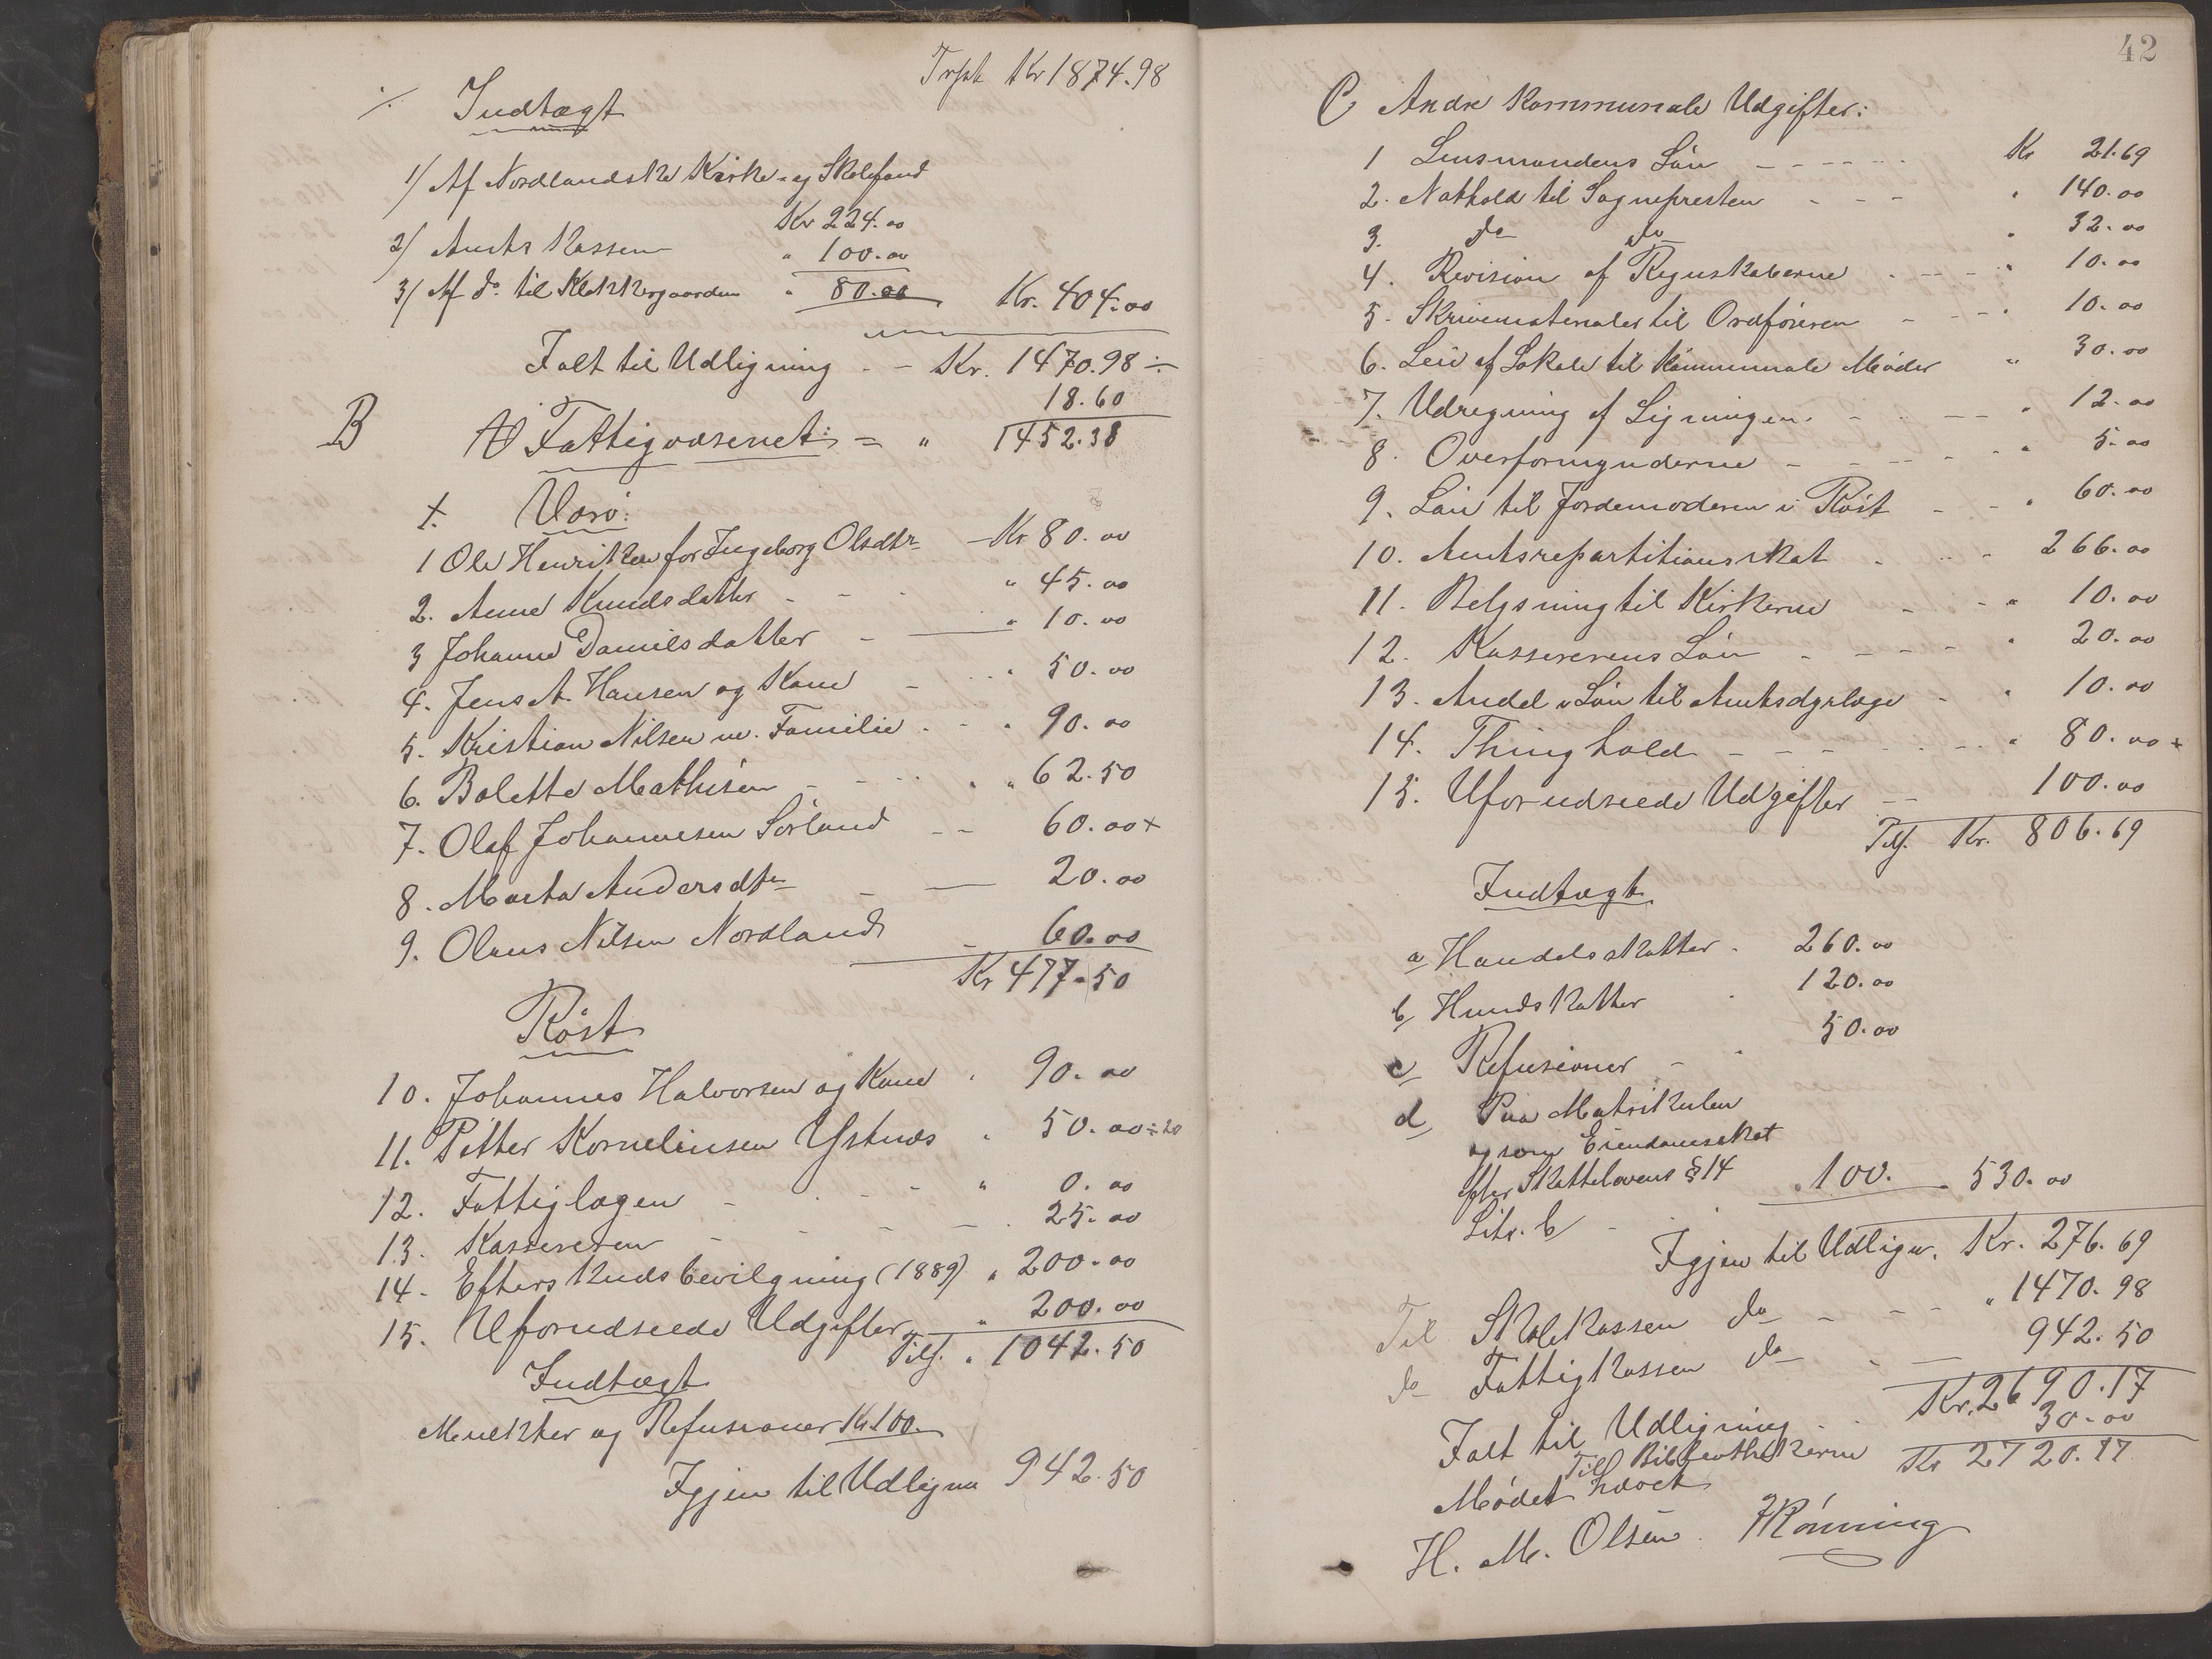 Trspt Kr 1874.98
·/. Indtægt
1/ Af Nordlandske Kirke- og Skolefond
Kr 224.00
2/ Amts Kassen " 100.00
3/ Af do. til Klokkergaarden " 80.00 Kr. 404.00
Ialt til Udligning - - Kr. 1470.98 ÷
18.60
B Fattigvæsenet: = " 1452.38
Værø:
1 Ole Henriksen for Ingeborg Olsdtr - Kr 80.00
2. Anne Knudsdatter - - " 45.00
3 Johanne Danielsdatter - " 10.00
4. Jens A. Hansen og Kone - " 50.00
5. Kristian Nilsen m. Familie - " 90.00
6. Bolette Mathisen - - - " 62.50
7. Olaf Johannesen Sørland - - 60.00+
8. Marta Andersdtr - — 20.00
9. Olaus Nilsen Nordland - 60.00
Kr 477.50
Röst
10. Johannes Halvorsen og Kone " 90.00
11. Petter Korneliusen Ystnæs " 50.00÷20
12. Fattiglægen - - - " 0.00
13. Kassereren - - - - 25.00
14. Efterskudsbevilgning (1889) " 200.00
15. Uforudseede Udgifter " 200.00
Tils. " 1042.50
Indtægt
Mulkter og Refusioner Kr 100.
Igjen til Udlignn 942.50
42
C Andre Kommunale Udgifter:
1 Lensmandens Løn - - - - - Kr 21.69
2. Nathold til Sognepresten - - - " 140.00
3. do do " 32.00
4. Revision af Regnskaberne - - - " 10.00
5. Skrivematerialer til Ordføreren - - - " 10.00
6. Leie af Lokale til Kommunale Møder " 30.00
7. Udregning af Ligningen. - - - - " 12.00
8. Overformynderne - - - - - " 5.00
9. Løn til Jordemoderen i Röst - - " 60.00
10. Amtsrepartitionsskat - - - 266.00
11. Belysning til Kirkerne - - " 10.00
12. Kassererens Løn - - - - " 20.00
13. Andel i Løn til Amtsdyrlæge - " 10.00
14. Thinghold - - - - - - " 80.00+
15. Uforudseede Udgifter - - 100.00
Tils. Kr. 806.69
Indtægt
a Handelsskatter - 260.00
b, Hundskatter - 120.00
c Refusioner - " 50.00
d Paa Matrikulen
og som Eiendomsskat
efter Skattelovens § 14
Litr. b - " 100. - 530.00
Igjen til Udlign. Kr. 276.69
Til Skolekassen do - - - " 1470.98
do Fattigkassen do - — 942.50
Ialt til Udligning - - Kr. 2690.17
Til Bibliothekerne 30.00
Kr 2720.17
Mødet hævet
H. M. Olsen. Rønning